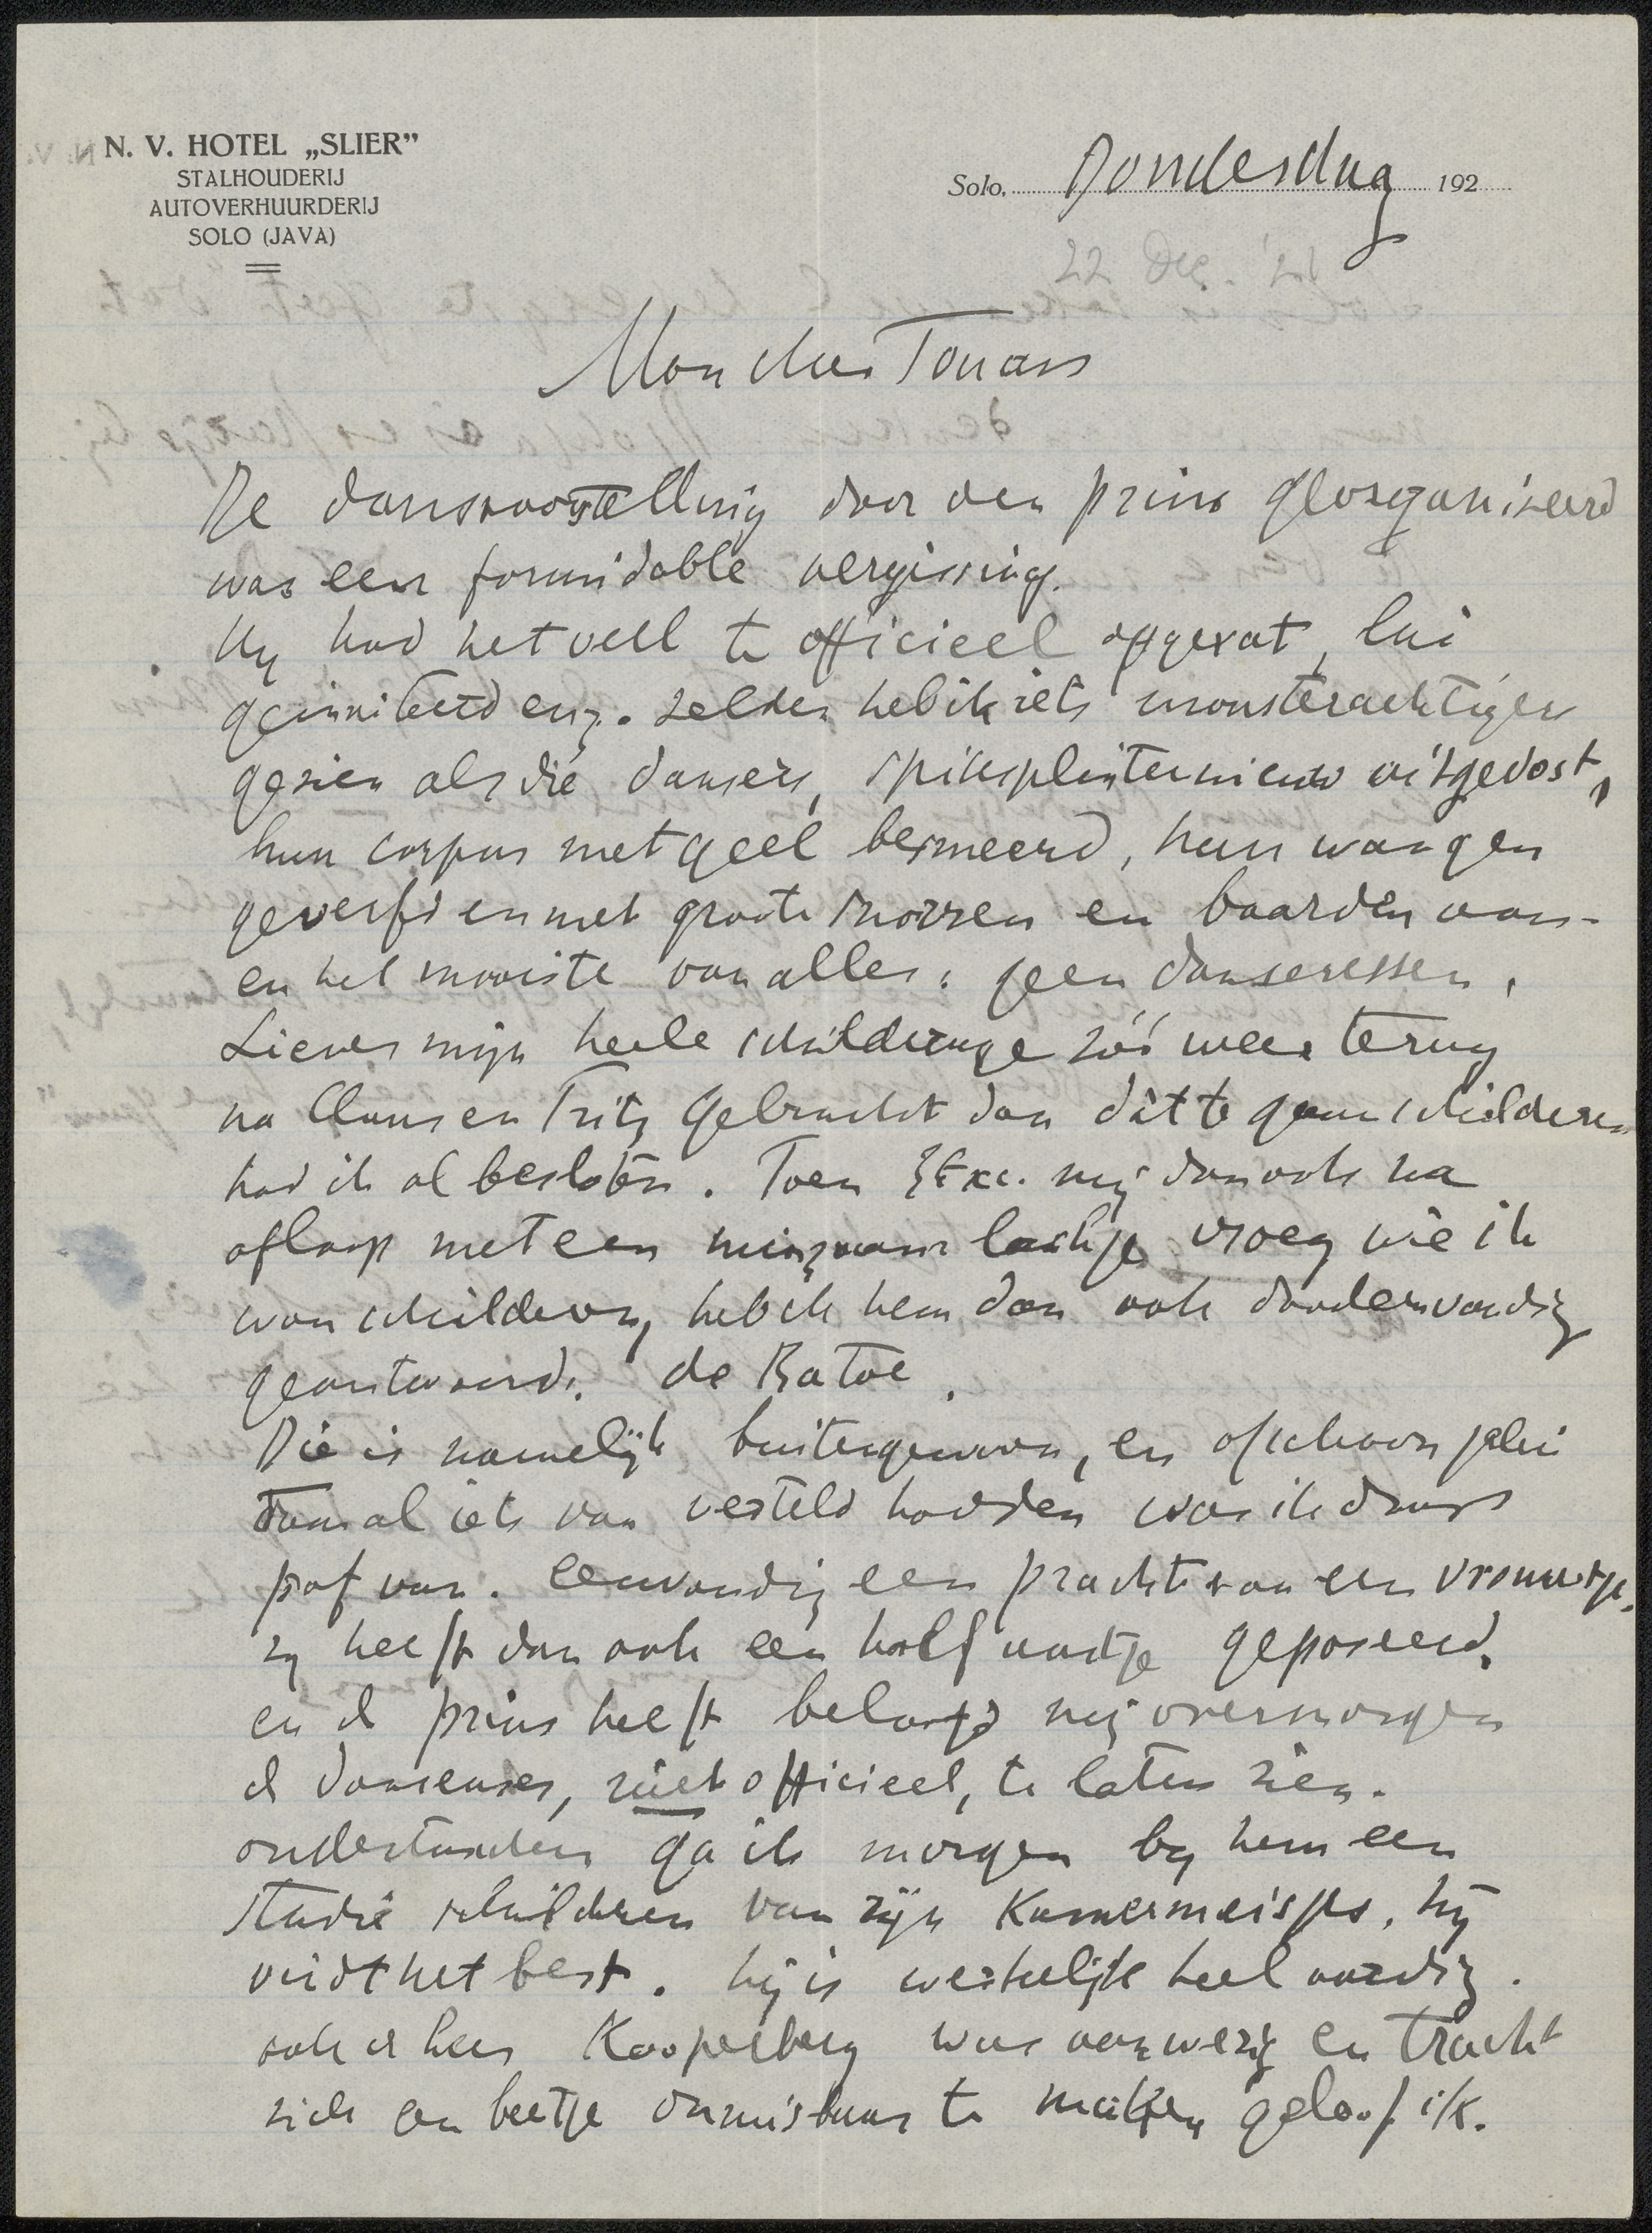 N. V. HOTEL „SLIER”
STALHOUDERIJ
AUTOVERHUURDERIJ
SOLO (JAVA)
Solo, Donderdag 192
22 Dec. '21
Mon cher Tonans
De dansvoorstelling door den prins georganiseerd
was een formidable vergissing.
Hij had het veel te officieel opgevat, lui
geinviteerd enz. zelden heb ik iets monsterachtigers
gezien als die dansers, spiksplinternieuw uitgedost,
hun corpus met geel besmeerd, hun wangen
geverfd en met groote snorren en baarden aan-
en het mooiste van alles: geen danseressen.
Liever mijn heele schildertuge zóó weer terug
na Claus en Fritz gebracht dan dàt te gaan schilderen
had ik al besloten. Toen Z Exc. mij dan ook na
afloop met een minzaam lachje vroeg wie ik
wou schilderen, heb ik hem dan ook doodeenvoudig
geantwoord: de Ratoe.
Die is namelijk buitengewoon, en ofschoon jelui
daar al iets van verteld hadden was ik daar
paf van. eenvoudig een pracht van een vrouwtje.
zij heeft dan ook een half uurtje geposeerd.
en de prins heeft beloofd mij overmorgen
de danseuses, niet officieel, te laten zien.
ondertusschen ga ik morgen bij hem een
studie schilderen van zijn kamermeisjes, hij
vindt het best. hij is werkelijk heel aardig.
ook de heer Koopersberg was aanwezig en tracht
zich een beetje onmisbaar te maken geloof ik.